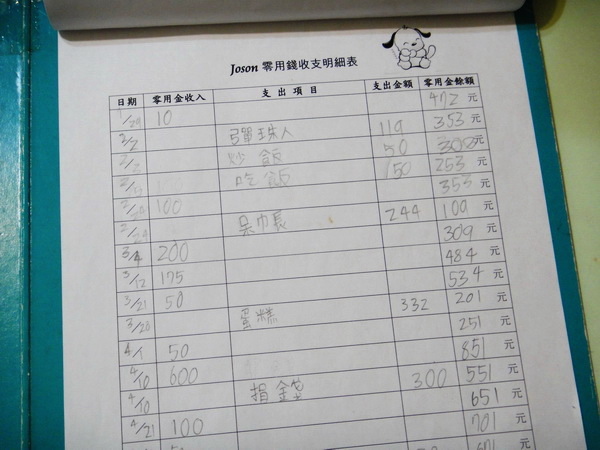 Joson 零用錢收支明細表
日期 零用金收入 支出項目 支出金額 零用金餘額
1/29 10 472 元
2/2 彈珠人 119 353 元
2/2 炒飯 50 303 元
吃飯 50 253 元
100 353 元
2/29 244 109 元
3/4 200 309 元
3/12 175 484 元
3/21 50 534 元
3/28 蛋糕 332 201 元
4/1 50 251 元
4/10 600 851 元
4/10 捐錢 300 551 元
4/21 100 651 元
701 元